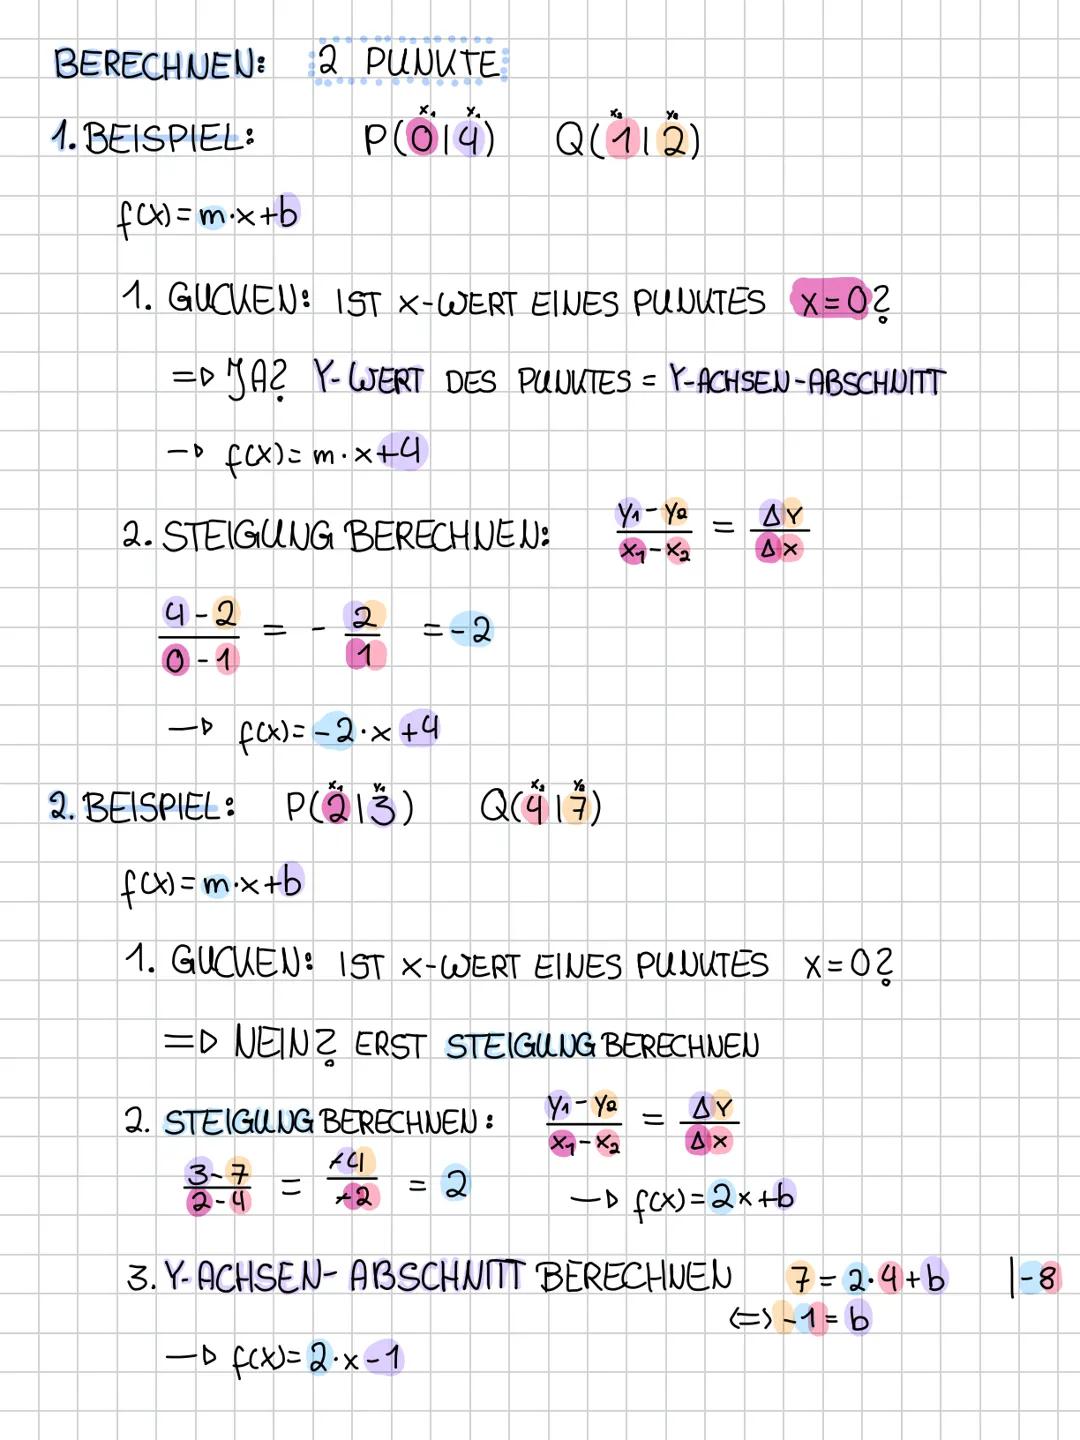 BERECHNEN: 2 PUNKTE
x₁ x₁ x₂ y₂
1. BEISPIEL: P(0|4) Q(1|2)
f(x) = m·x+b
1. GUCKEN: IST X-WERT EINES PUNKTES x=0?
=> JA? Y-WERT DES PUNKTES = Y-ACHSEN-ABSCHNITT
→ f(x) = m·x+4
2. STEIGUNG BERECHNEN: (y₁-y₂)/(x₁-x₂) = ΔY/Δx
(4-2)/(0-1) = - 2/1 = -2
→ f(x) = -2·x+4
x₁ y₁ x₂ y₂
2. BEISPIEL: P(2|3) Q(4|7)
f(x) = m·x+b
1. GUCKEN: IST X-WERT EINES PUNKTES x=0?
=> NEIN? ERST STEIGUNG BERECHNEN
2. STEIGUNG BERECHNEN: (y₁-y₂)/(x₁-x₂) = ΔY/Δx
(3-7)/(2-4) = -4/-2 = 2 → f(x) = 2x+b
3. Y-ACHSEN-ABSCHNITT BERECHNEN 7 = 2·4+b |-8
<=> -1 = b
→ f(x) = 2·x-1